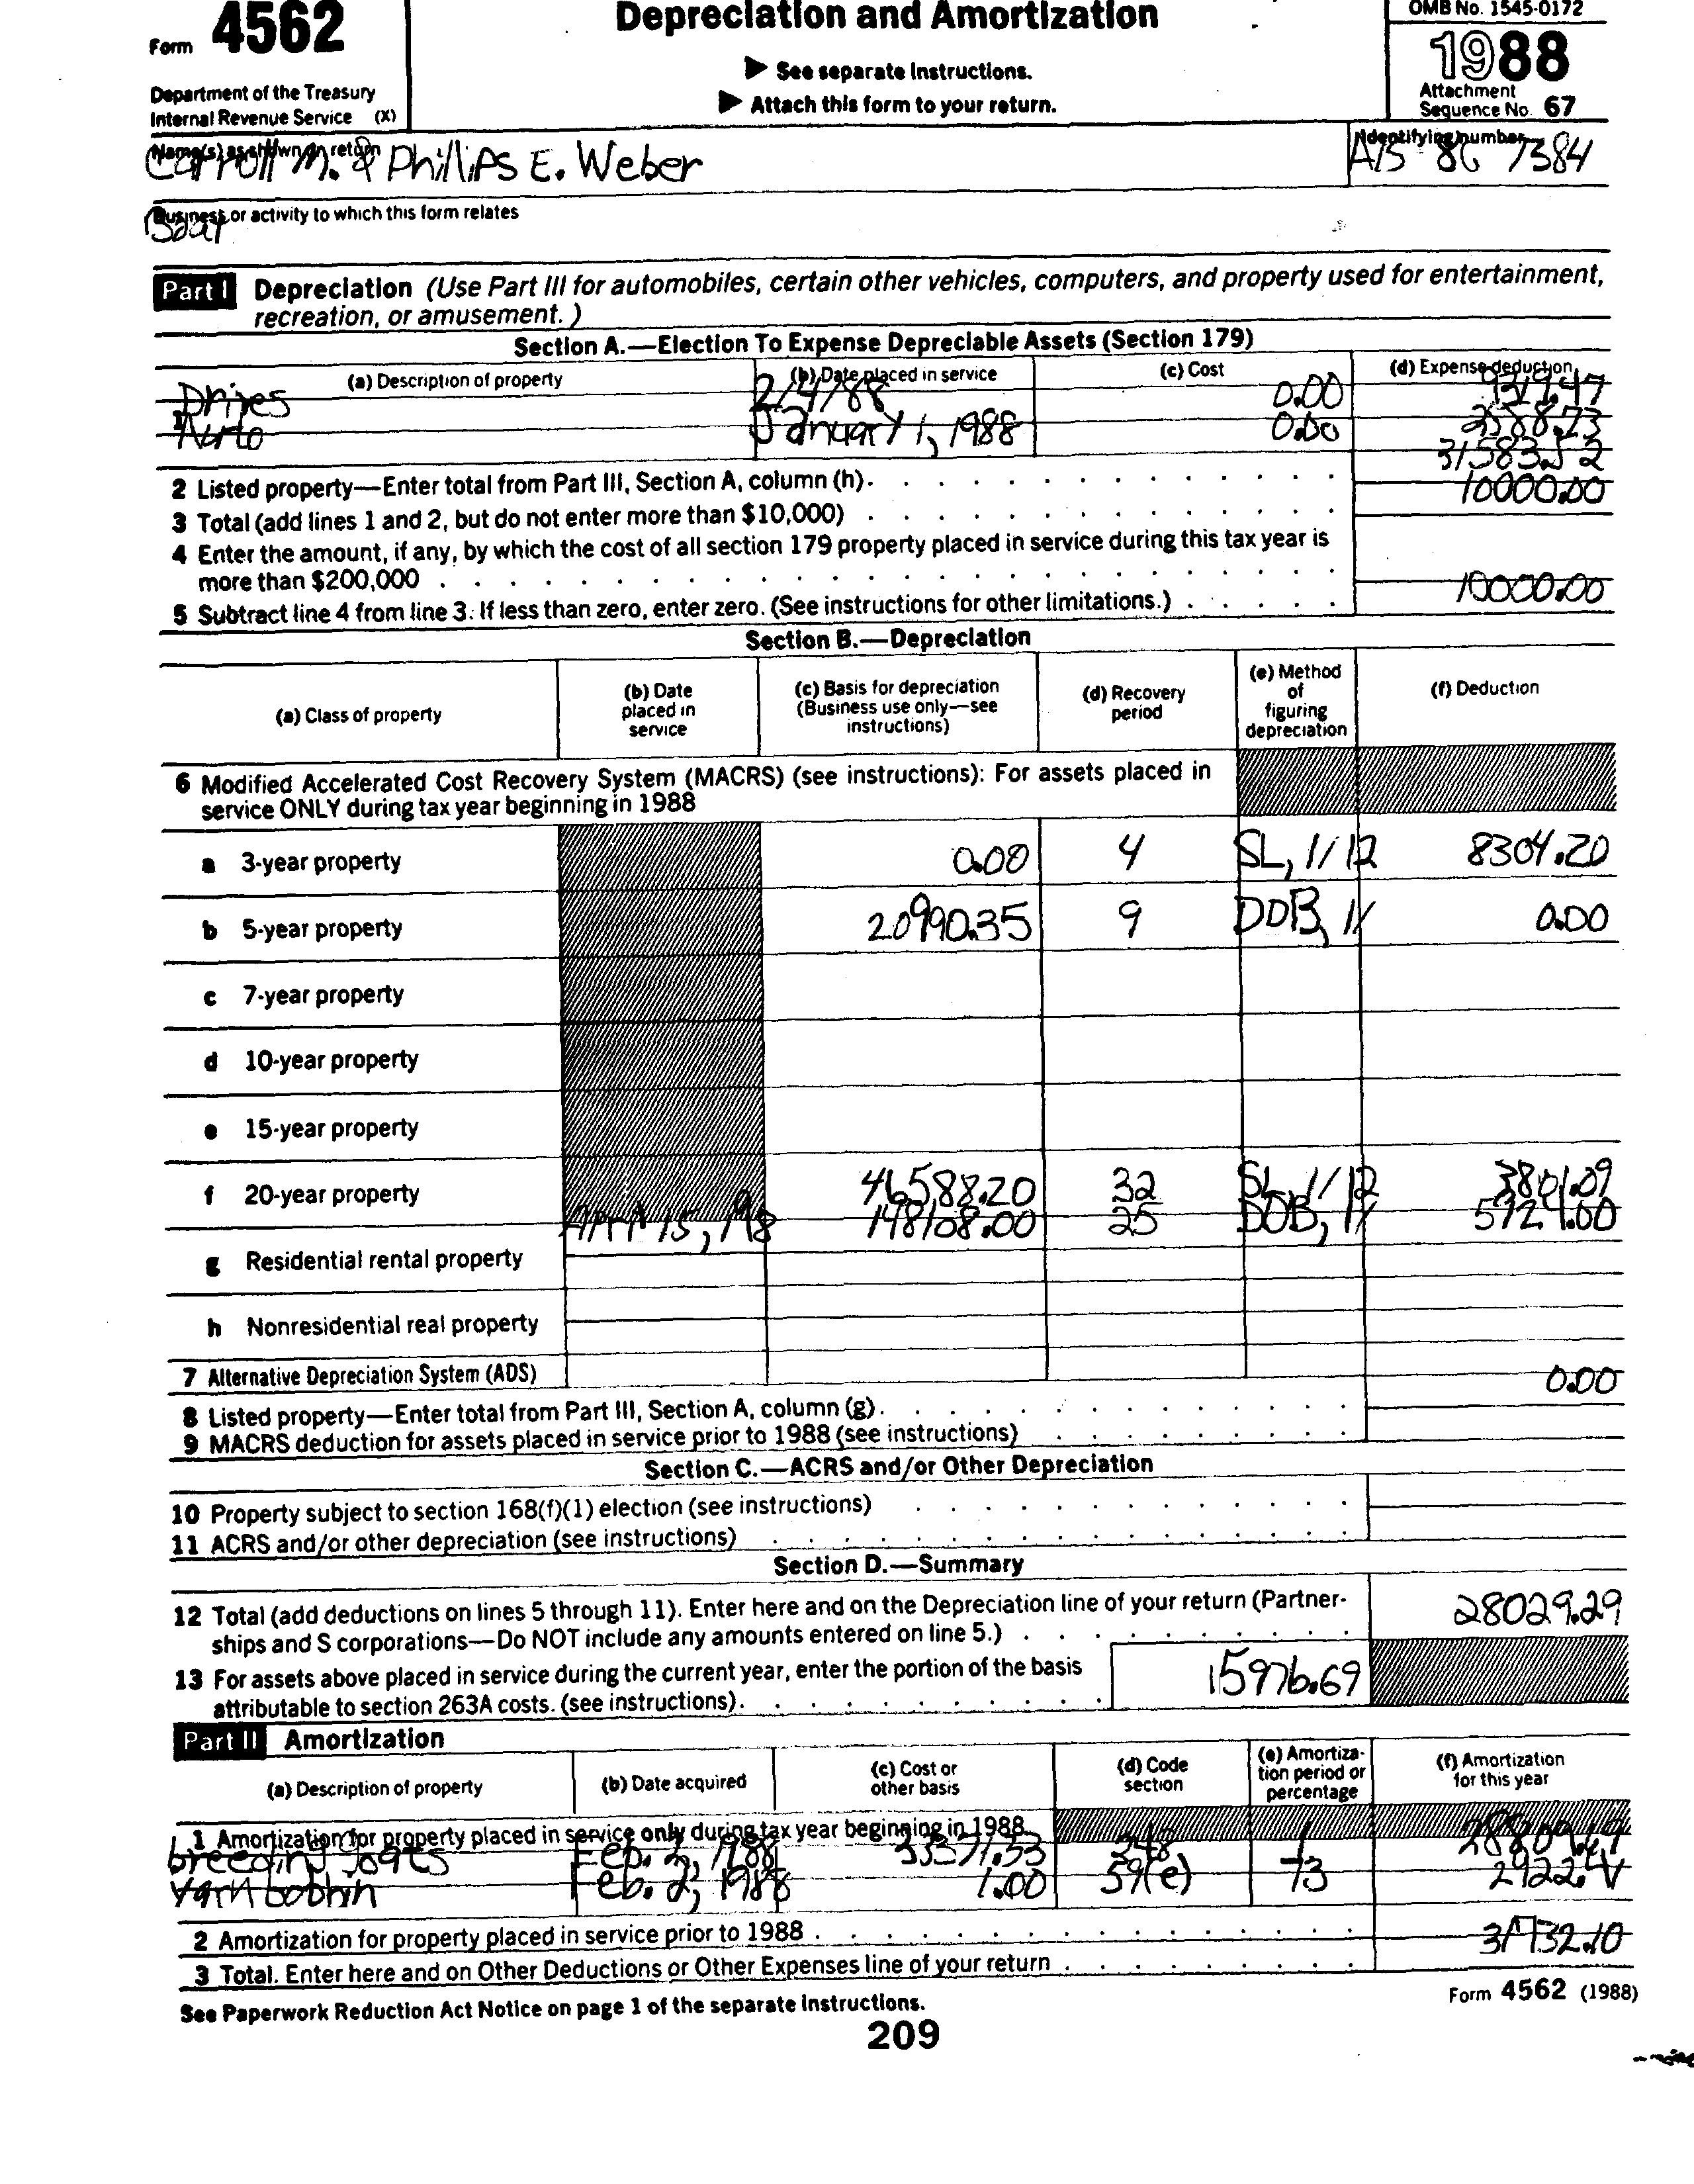 Form 4562
Depreciation and Amortization
OMB No. 1545-0172
1988
▶ See separate Instructions.
▶ Attach this form to your return.
Department of the Treasury
Internal Revenue Service (X)
Attachment
Sequence No. 67
Name(s) as shown on return
Identifying number
Carroll M. & Phillips E. Weber
7384
Business or activity to which this form relates
Part I Depreciation (Use Part III for automobiles, certain other vehicles, computers, and property used for entertainment,
recreation, or amusement.)
Section A.—Election To Expense Depreciable Assets (Section 179)
(a) Description of property (b) Date placed in service (c) Cost (d) Expense deduction
2/4/88 0.00
1 January 1, 1988 0.00
31583.52
2 Listed property—Enter total from Part III, Section A, column (h).
10000.00
3 Total (add lines 1 and 2, but do not enter more than $10,000)
4 Enter the amount, if any, by which the cost of all section 179 property placed in service during this tax year is
more than $200,000
10000.00
5 Subtract line 4 from line 3. If less than zero, enter zero. (See instructions for other limitations.)
Section B.—Depreciation
(a) Class of property (b) Date placed in service (c) Basis for depreciation (Business use only—see instructions) (d) Recovery period (e) Method of figuring depreciation (f) Deduction
6 Modified Accelerated Cost Recovery System (MACRS) (see instructions): For assets placed in
service ONLY during tax year beginning in 1988
a 3-year property 0.00 4 SL, 1/12 8304.20
b 5-year property 20990.35 9 DDB, 1/ 0.00
c 7-year property
d 10-year property
e 15-year property
f 20-year property 46588.20 32 SL, 1/12 3801.09
15, 198 148108.00 25 DDB, 1/ 5924.00
g Residential rental property
h Nonresidential real property
7 Alternative Depreciation System (ADS)
0.00
8 Listed property—Enter total from Part III, Section A, column (g).
9 MACRS deduction for assets placed in service prior to 1988 (see instructions)
Section C.—ACRS and/or Other Depreciation
10 Property subject to section 168(f)(1) election (see instructions)
11 ACRS and/or other depreciation (see instructions)
Section D.—Summary
12 Total (add deductions on lines 5 through 11). Enter here and on the Depreciation line of your return (Partner-
ships and S corporations—Do NOT include any amounts entered on line 5.)
28029.29
13 For assets above placed in service during the current year, enter the portion of the basis
attributable to section 263A costs. (see instructions).
15976.69
Part II Amortization
(a) Description of property (b) Date acquired (c) Cost or other basis (d) Code section (e) Amortization period or percentage (f) Amortization for this year
1 Amortization for property placed in service only during tax year beginning in 1988
breeding goats Feb. 2, 1988 33371.53 248 1
yarn bobbin Feb. 2, 1988 1.00 59(e) 73
2 Amortization for property placed in service prior to 1988
31732.10
3 Total. Enter here and on Other Deductions or Other Expenses line of your return
See Paperwork Reduction Act Notice on page 1 of the separate Instructions.
Form 4562 (1988)
209